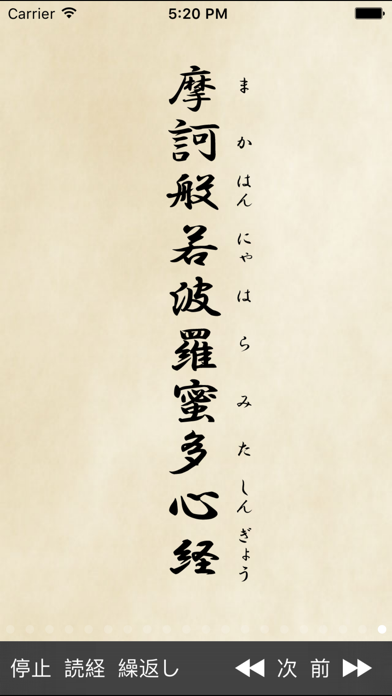 Carrier 5:20 PM
摩訶般若波羅蜜多心経
まかはんにゃはらみたしんぎょう
停止 読経 繰返し 次 前